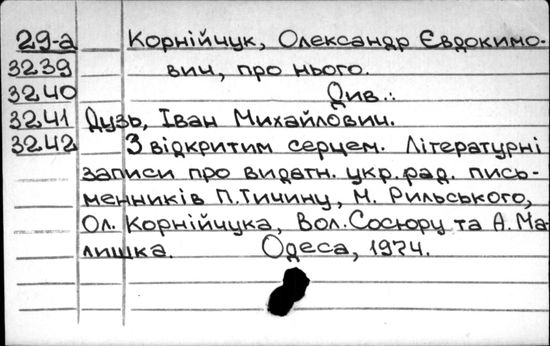 29-а Корнійчук, Олександр Євдокимо-
3239 вич, про нього.
3240 Див.:
3241 Дузь, Іван Михайлович.
3242 З відкритим серцем. Літературні
записи про видатн. укр. рад. пись-
менників П. Тичину, М. Рильського,
Ол. Корнійчука, Вол. Сосюру та А. Ма-
лишка. Одеса, 1974.